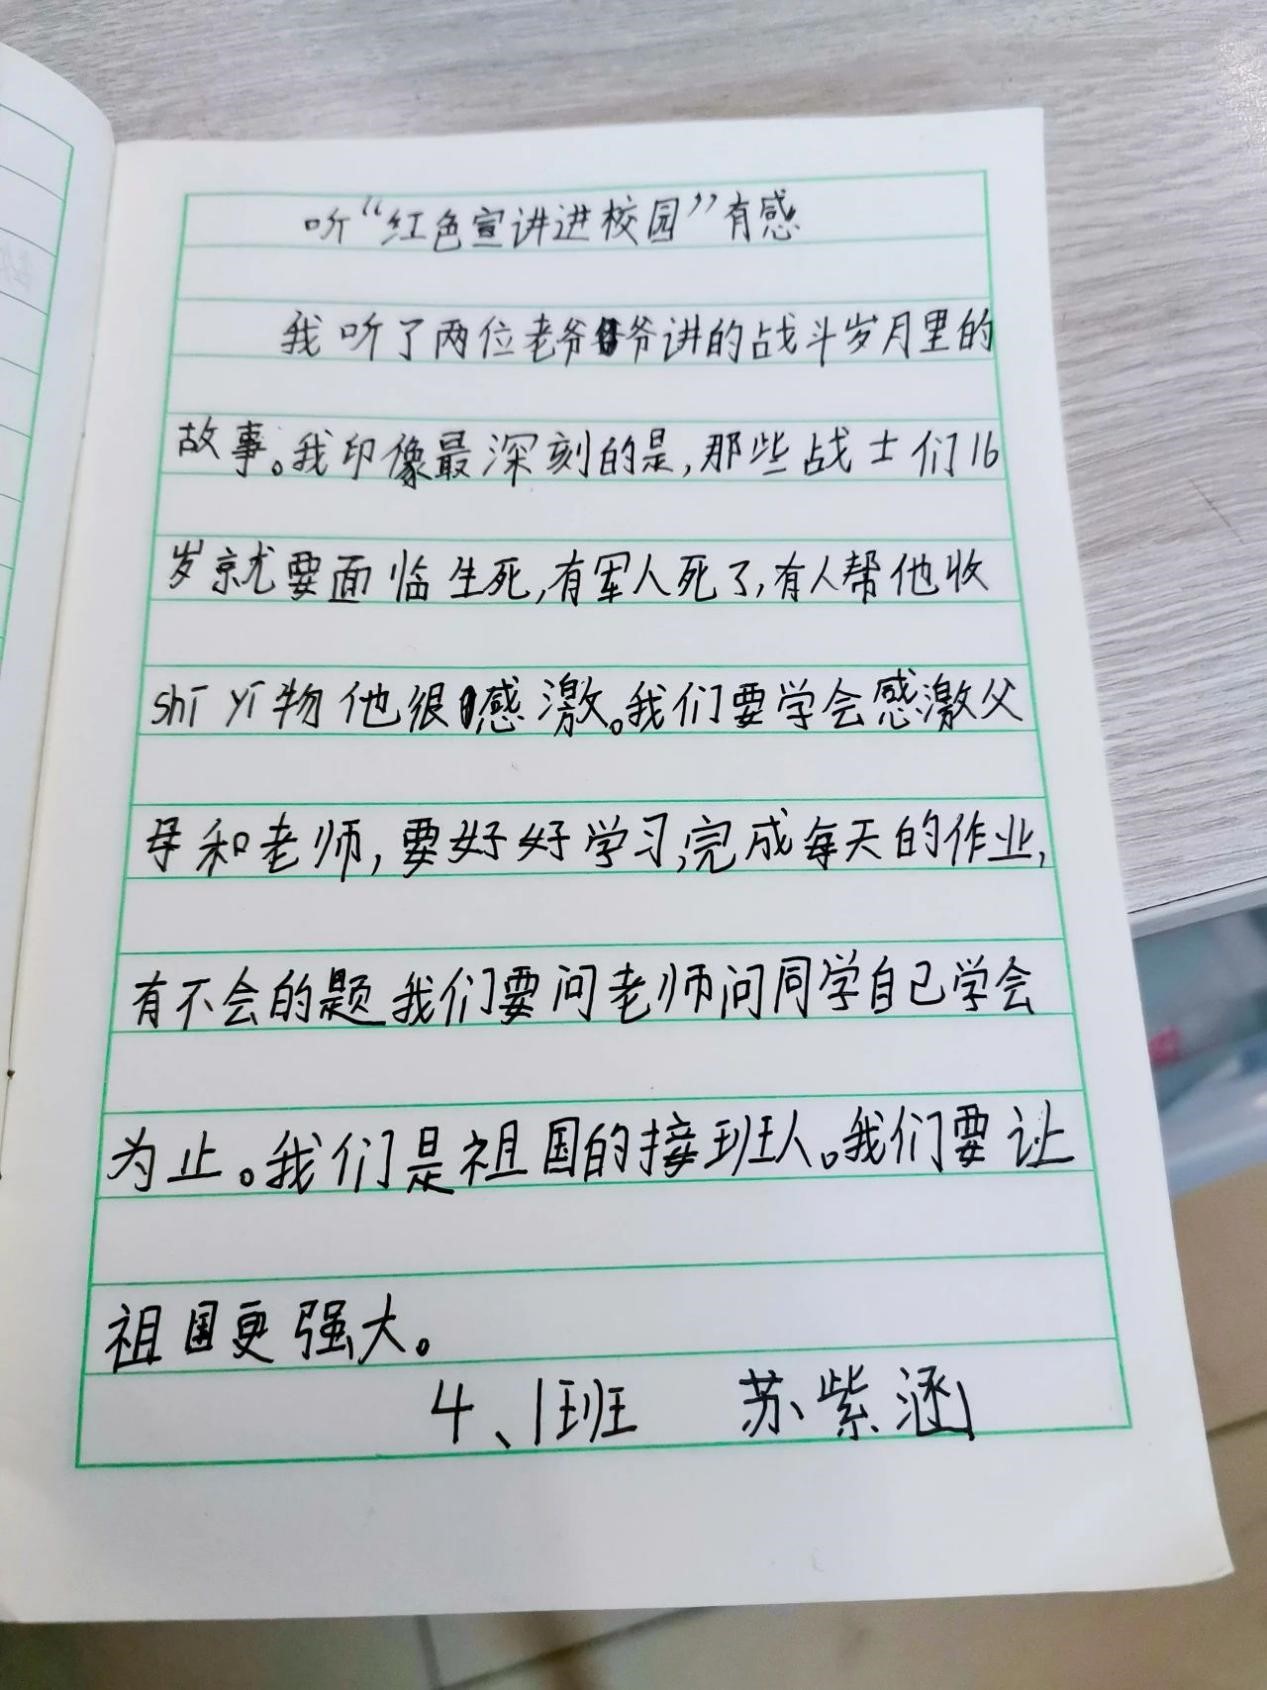 听“红色宣讲进校园”有感
我听了两位老爷爷讲的战斗岁月里的
故事。我印像最深刻的是,那些战士们16
岁就要面临生死,有军人死了,有人帮他收
shī yī物他很感激。我们要学会感激父
母和老师,要好好学习,完成每天的作业,
有不会的题我们要问老师问同学自己学会
为止。我们是祖国的接班人。我们要让
祖国更强大。
4、1班 苏紫涵